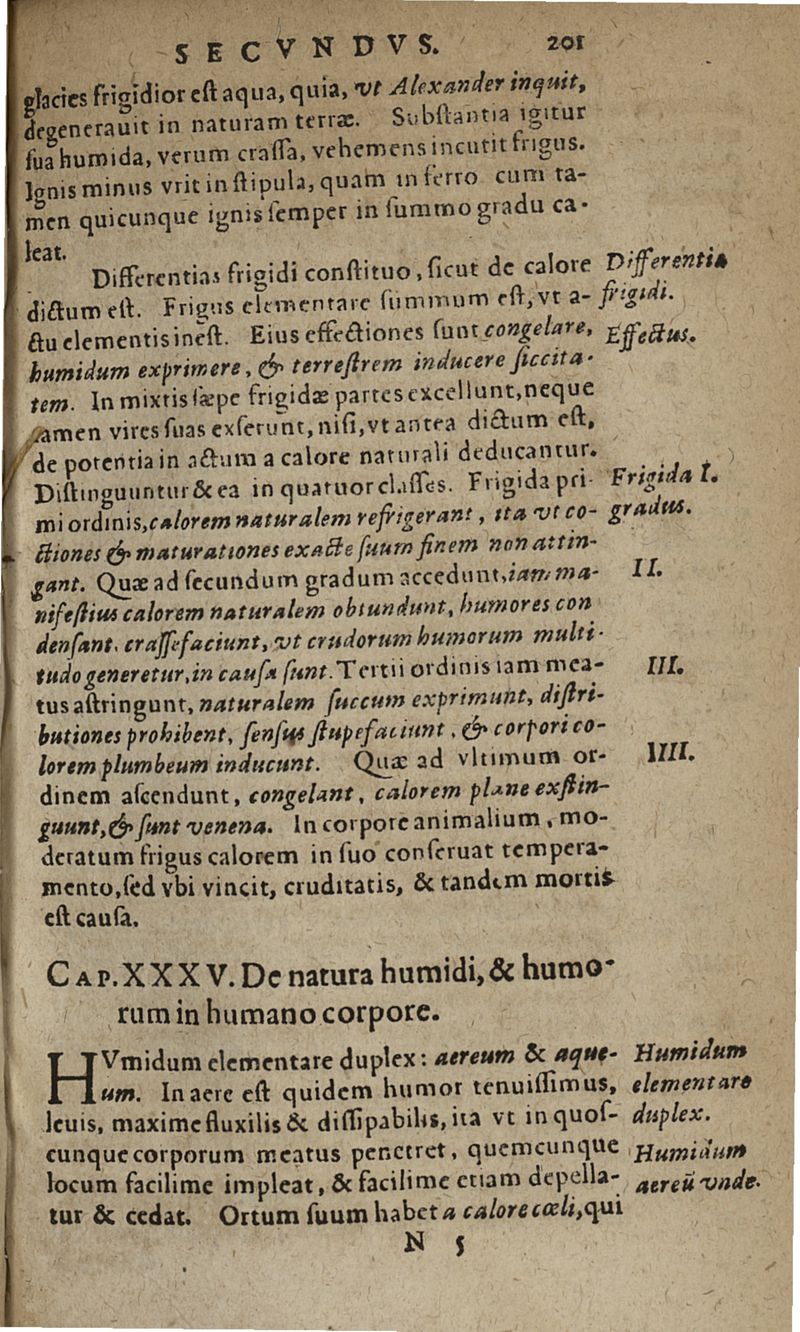 SECVNDVS. 201
glacies frigidior est aqua, quia, vt Alexander inquit,
degenerauit in naturam terræ. Substantia igitur
sua humida, verum crassa, vehemens incutit frigus.
Ignis minus vrit in stipula, quam in ferro cum ta-
men quicunque ignis semper in summo gradu ca-
leat.
Differentias frigidi constituo, sicut de calore
dictum est. Frigus elementare summum est, vt a-
ctu elementis inest. Eius effectiones sunt congelare,
humidum exprimere, & terrestrem inducere siccita-
tem. In mixtis sæpe frigidæ partes excellunt, neque
tamen vires suas exserunt, nisi, vt antea dictum est,
de potentia in actum a calore naturali deducantur.
Distinguuntur & ea in quatuor classes. Frigida pri-
mi ordinis, calorem naturalem refrigerant, ita vt co-
ctiones & maturationes exacte suum finem non attin-
gant. Quæ ad secundum gradum accedunt, iam ma-
nifestius calorem naturalem obtundunt, humores con
densant, crassefaciunt, vt crudorum humorum multi-
tudo generetur, in causa sunt. Tertii ordinis iam mea-
tus astringunt, naturalem succum exprimunt, distri-
butiones prohibent, sensus stupefaciunt, & corpori co-
lorem plumbeum inducunt. Quæ ad vltimum or-
dinem ascendunt, congelant, calorem plane exstin-
guunt, & sunt venena. In corpore animalium, mo-
deratum frigus calorem in suo conseruat tempera-
mento, sed vbi vincit, cruditatis, & tandem mortis
est causa.
Differentia
frigidi.
Effectus.
Frigida I.
gradus.
II.
III.
IIII.
CAP. XXXV. De natura humidi, & humo-
rum in humano corpore.
HVmidum elementare duplex: aereum & aque-
um. In aere est quidem humor tenuissimus,
leuis, maxime fluxilis & dissipabilis, ita vt in quos-
cunque corporum meatus penetret, quemcunque
locum facilime impleat, & facilime etiam depella-
tur & cedat. Ortum suum habet a calore cœli, qui
Humidum
elementare
duplex.
Humidum
aereū vnde.
N 5